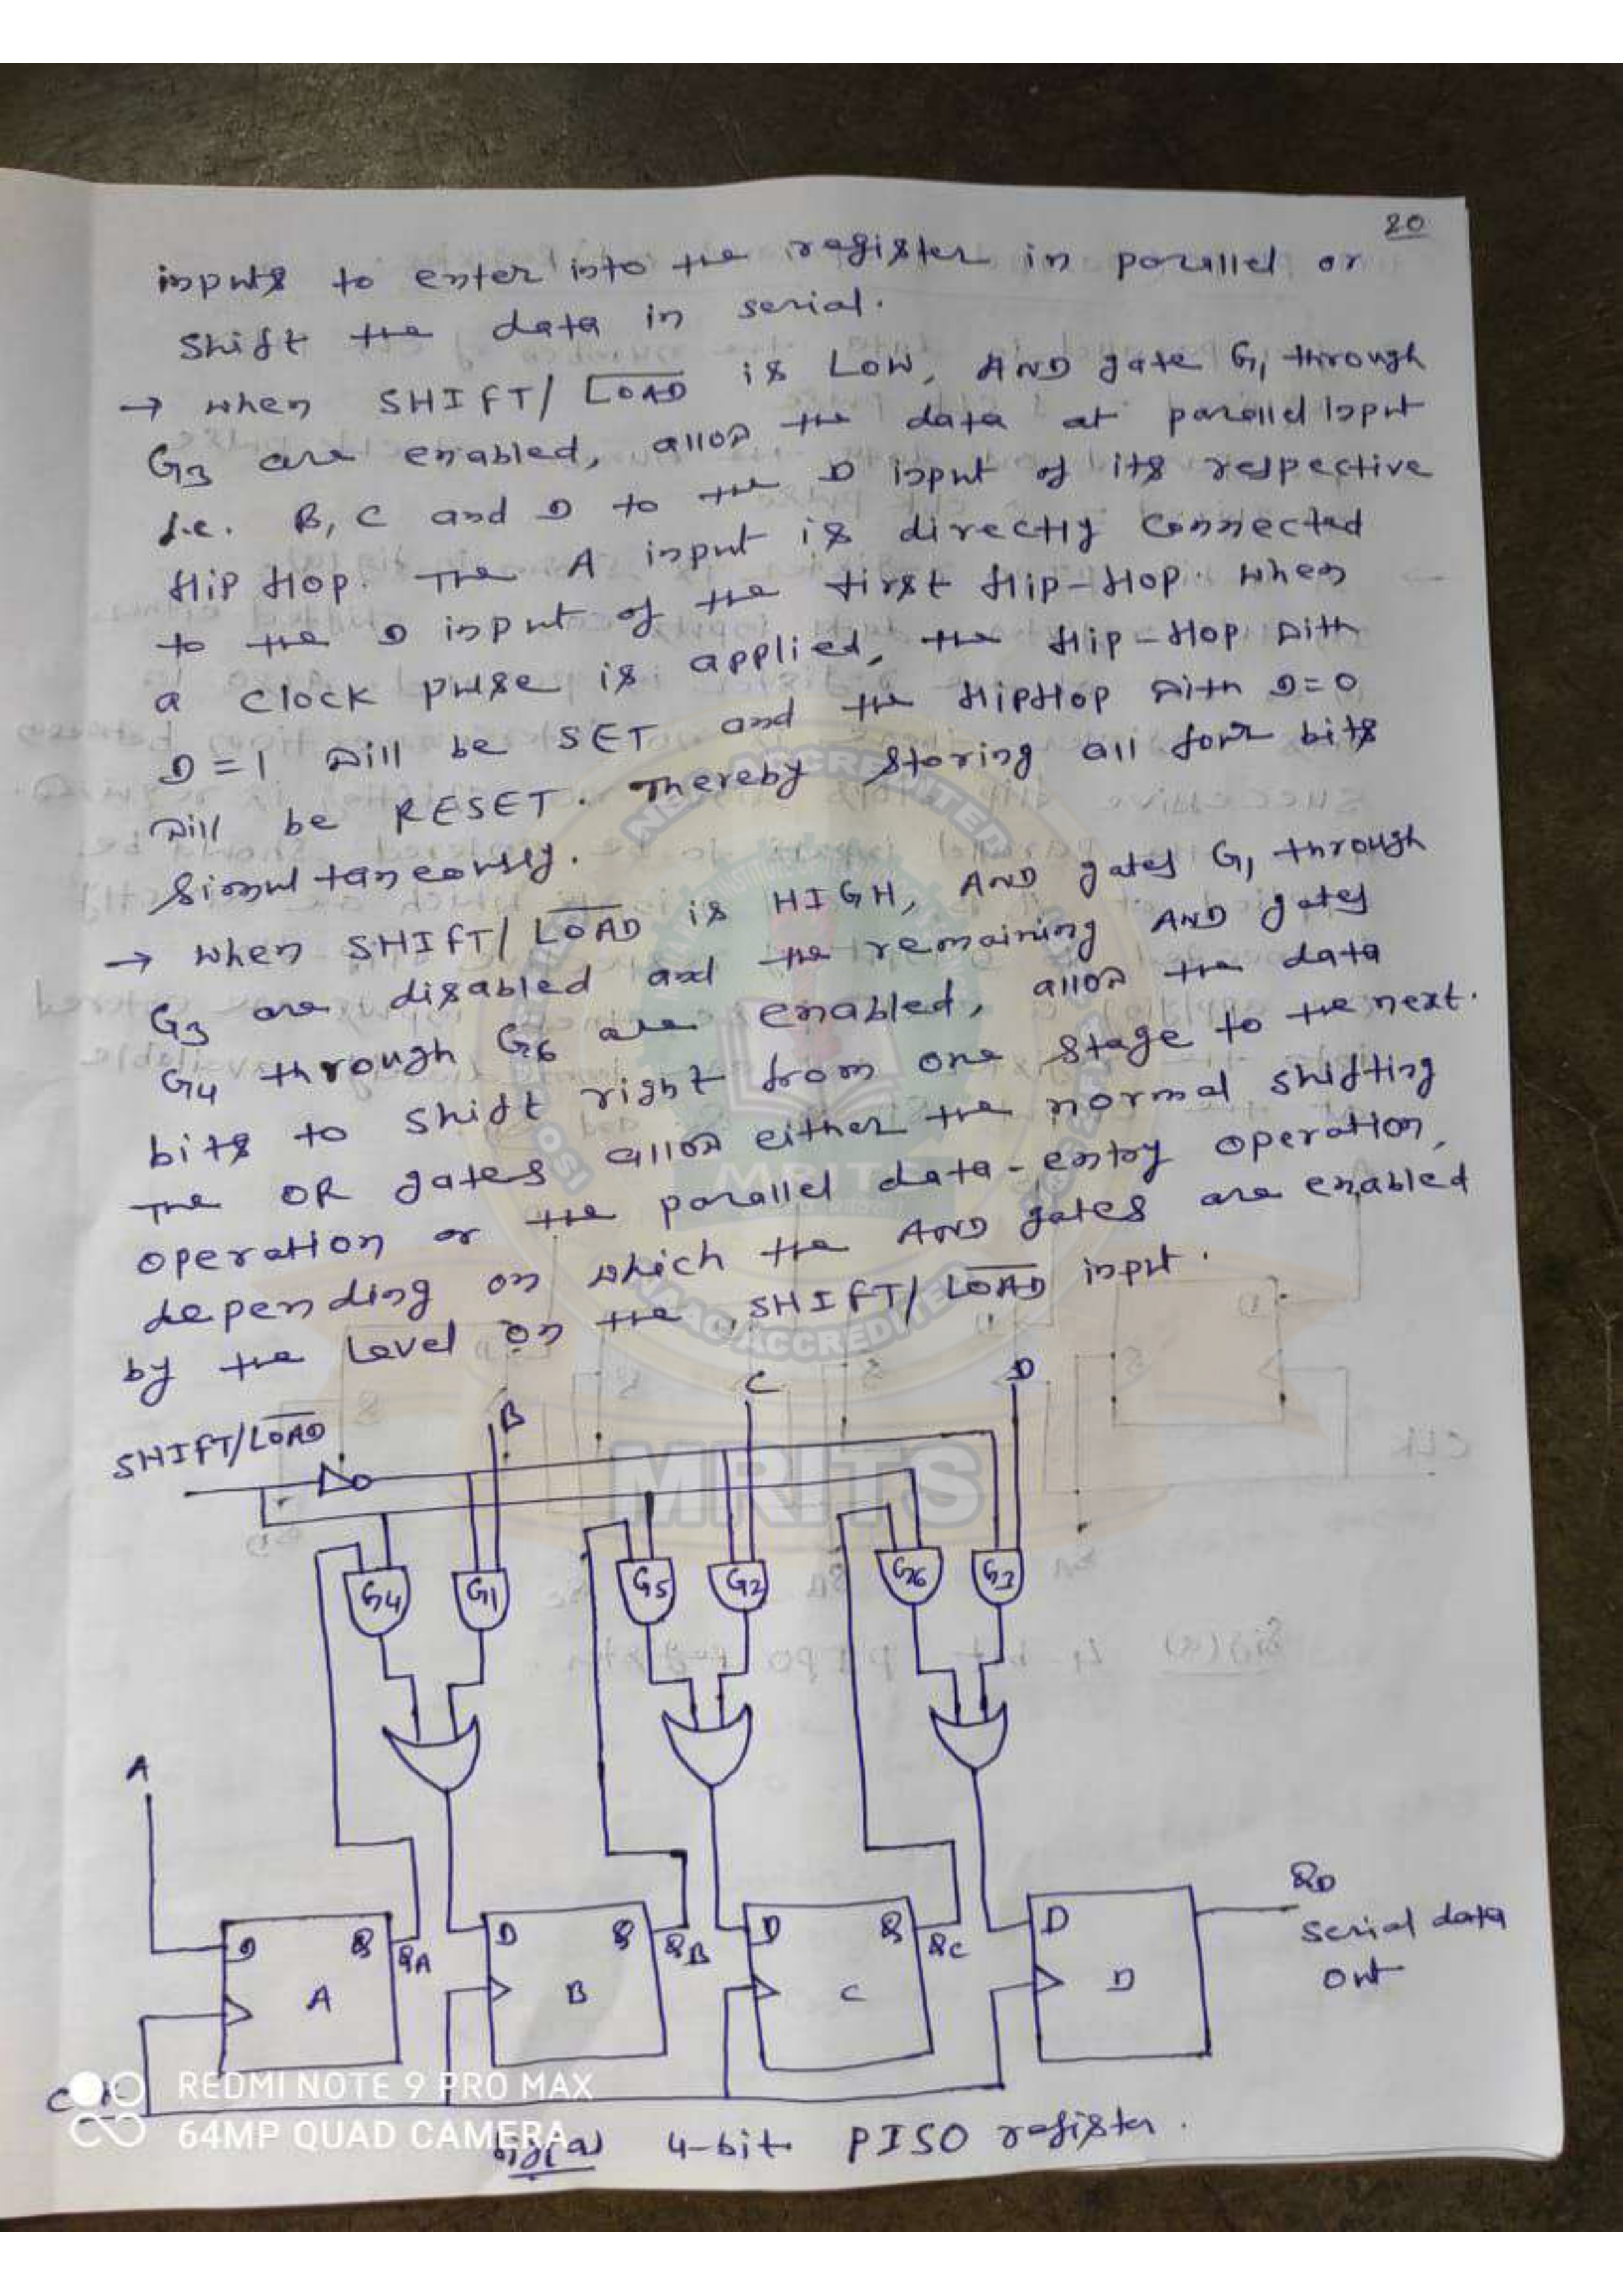 20
inputs to enter into the register in parallel or
shift the data in serial.
→ when SHIFT/L̅O̅A̅D̅ is LOW, AND gate G1 through
G3 are enabled, allow the data at parallel input
i.e. B, C and D to the D input of its respective
flip flop. The A input is directly connected
to the D input of the first flip-flop. When
a clock pulse is applied, the flip-flop with
D=1 will be SET and the flipflop with D=0
will be RESET. Thereby storing all four bits
simultaneously.
→ when SHIFT/L̅O̅A̅D̅ is HIGH, AND gates G1 through
G3 are disabled and the remaining AND gates
G4 through G6 are enabled, allow the data
bits to shift right from one stage to the next.
The OR gates allow either the normal shifting
operation or the parallel data-entry operation,
depending on which the AND gates are enabled
by the level on the SHIFT/L̅O̅A̅D̅ input.
SHIFT/L̅O̅A̅D̅ B C D
G4 G1 G5 G2 G6 G3
A
D Q QA D Q QB D Q QC D QD
A B C D
Serial data
out
REDMI NOTE 9 PRO MAX
64MP QUAD CAMERA
fig(a) 4-bit PISO register.
MRITS
NAAC ACCREDITED
MRITS